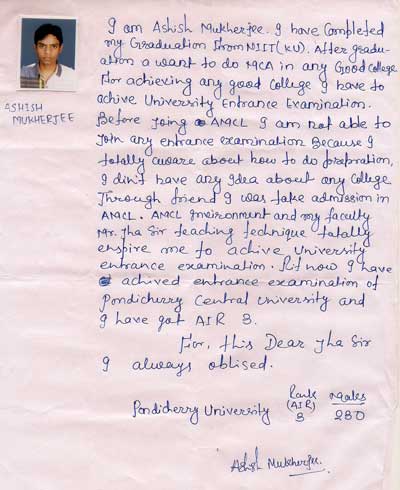 I am Ashish Mukherjee. I have Completed
my Graduation from NIIT(KU). After gradu-
ation a want to do MCA in any Good College
For achieving any good College I have to
achive University Entrance Examination.
Before joing AMCL I am not able to
join any entrance examination Because I
totally aware about how to do preparation,
I din't have any Idea about any College
Through friend I was take admission in
AMCL. AMCL Invironment and my faculty
Mr. Jha Sir teaching technique totally
enspire me to achive University
entrance examination. Rit now I have
achived entrance examination of
Pondicherry Central University and
I have got AIR 3.
For, this Dear Jha Sir
I always oblised.
ASHISH
MUKHERJEE
Rank Marks
Pondicherry University (AIR)
3 280
Ashish Mukherjee.